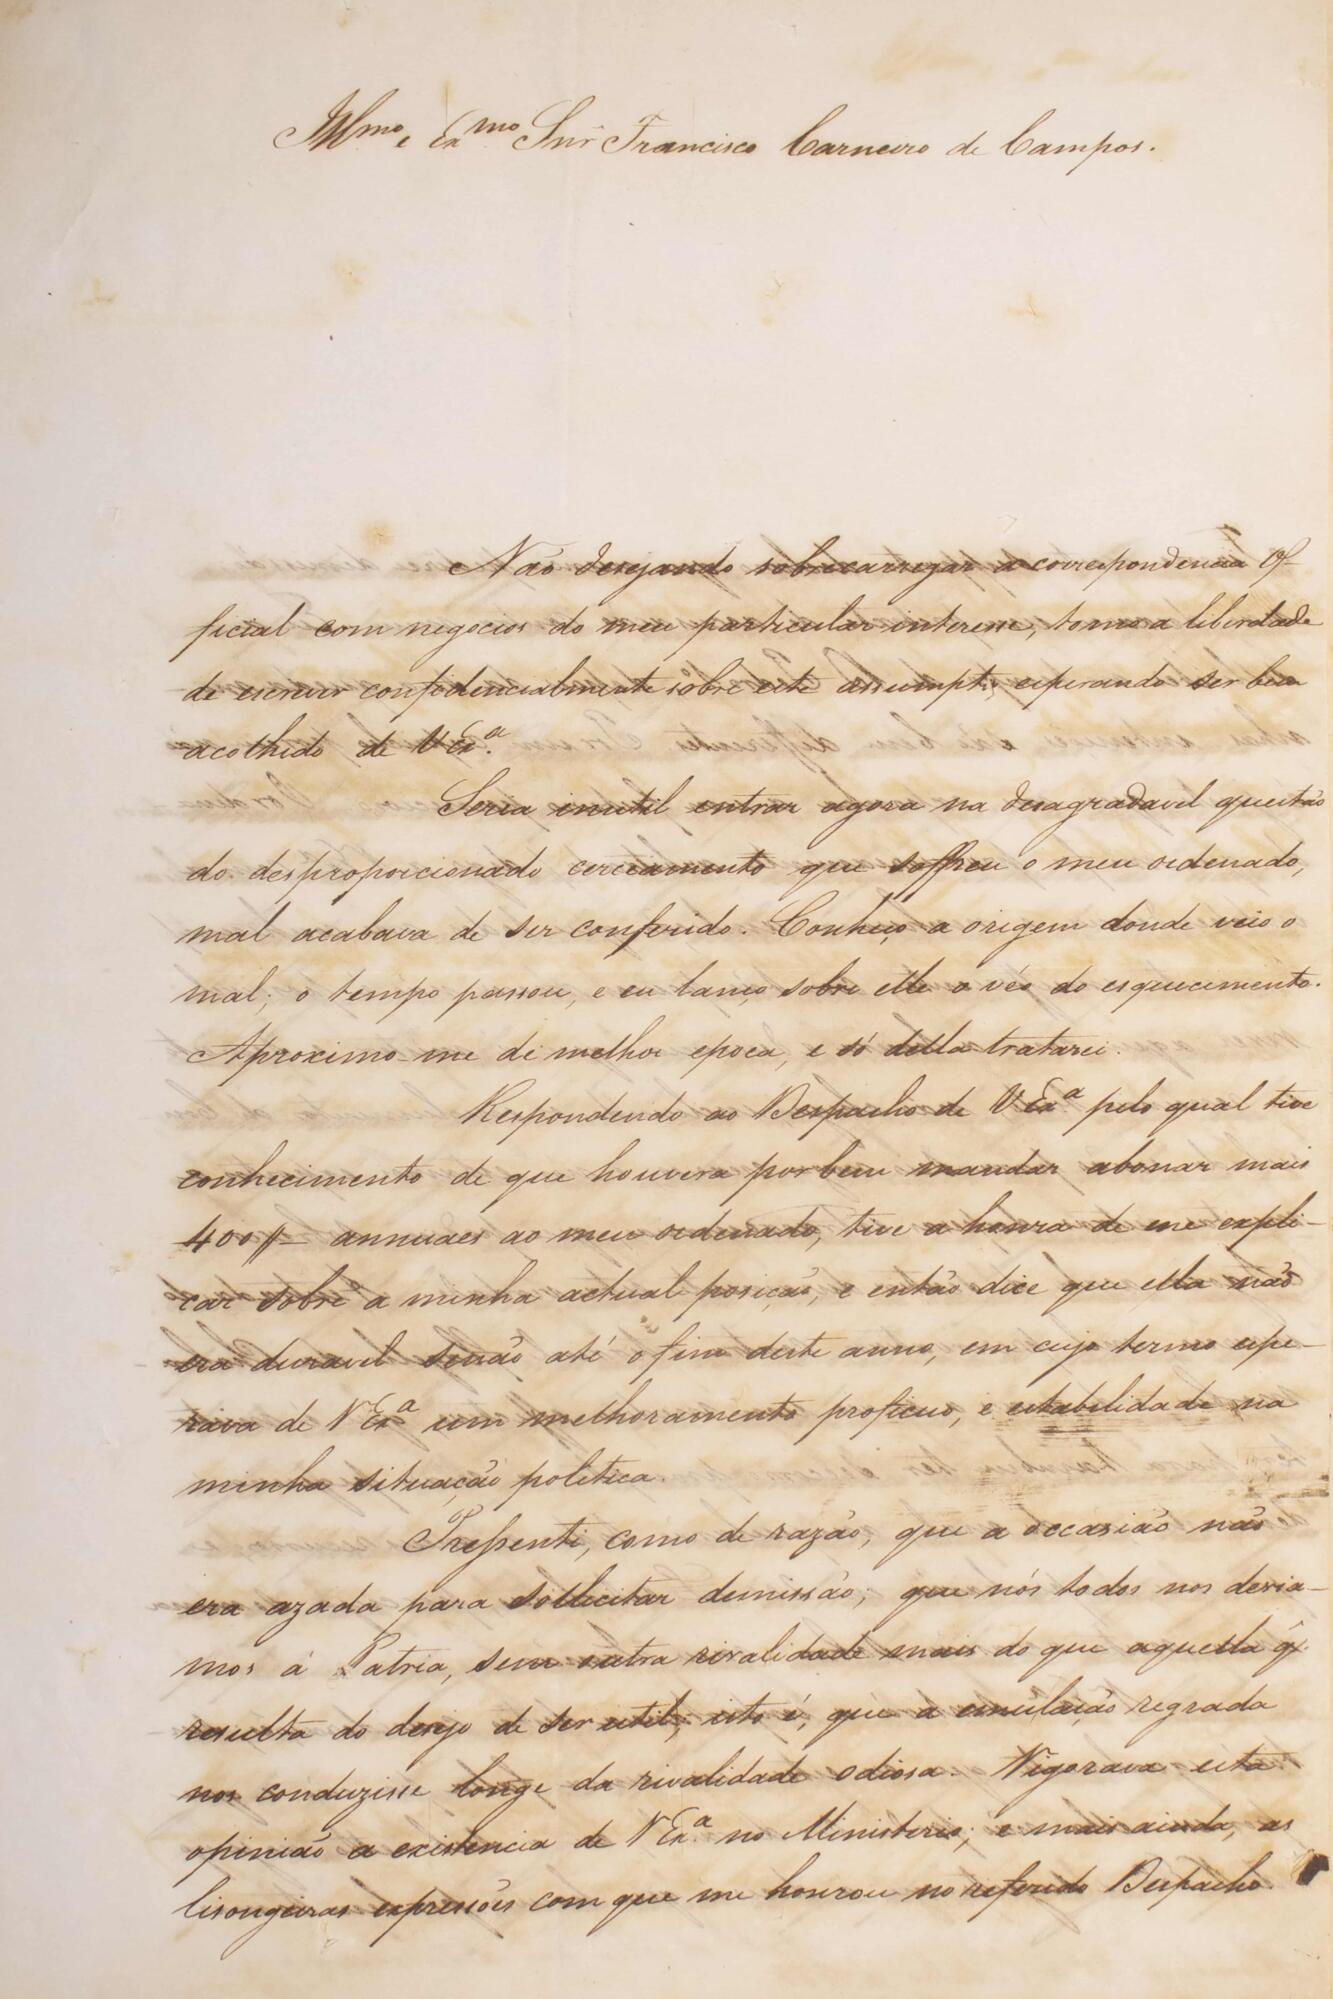 Illmo. e Exmo Snr Francisco Carneiro de Campos.
Não desejando sobrecarregar a correspondencia Of-
ficial com negocios do meu particular interesse, tomo a liberdade
de escrever confidencialmente sobre este assumpto, esperando ser bem
acolhido de V Exa.
Seria inutil entrar agora na desagradavel questão
do desproporcionado cerceamento que soffreu o meu ordenado,
mal acabava de ser conferido. Conheço a origem donde veio o
mal; o tempo passou, e eu lanço sobre elle o véo do esquecimento.
Aproximo-me de melhor epoca, e só della tratarei.
Respondendo ao Despacho de V Exa. pelo qual tive
conhecimento de que houvera por bem mandar abonar mais
400$ annuaes ao meu ordenado, tive a honra de me expli-
car sobre a minha actual posição, e então dice que ella não
era duravel senão até o fim deste anno, em cujo termo espe-
rava de V Exa um melhoramento proficuo, e estabilidade na
minha situação politica.
Pressenti, como de razão, que a occasião não
era azada para sollicitar demissão; que nós todos nos devia-
mos á Patria, sem outra rivalidade mais do que aquella q̃
resulta do desejo de ser util; isto é, que a emulação regrada
nos conduzisse longe da rivalidade odiosa. Vigorava esta
opinião a existencia de V Exa. no Ministerio; e mais ainda, as
lisongeiras expressões com que me honrou no referido Despacho.